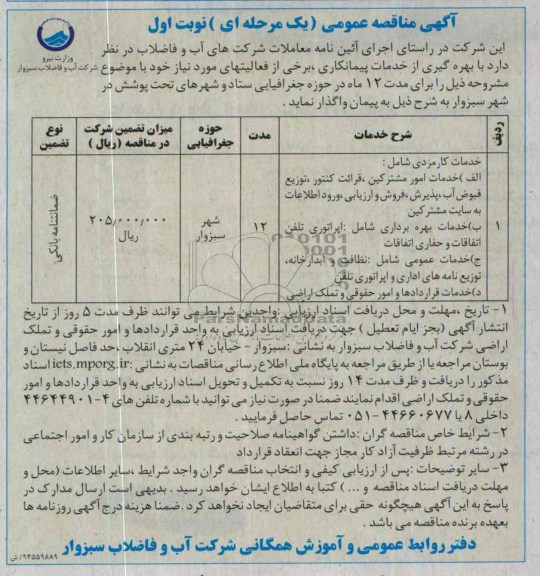 آگهی مناقصه عمومی (یک مرحله ای) نوبت اول
وزارت نیرو
شرکت آب و فاضلاب سبزوار
این شرکت در راستای اجرای آئین نامه معاملات شرکت های آب و فاضلاب در نظر
دارد با بهره گیری از خدمات پیمانکاری ،برخی از فعالیتهای مورد نیاز خود با موضوع
مشروحه ذیل را برای مدت ۱۲ ماه در حوزه جغرافیایی ستاد و شهرهای تحت پوشش در
شهر سبزوار به شرح ذیل به پیمان واگذار نماید .
ردیف
شرح خدمات
مدت
حوزه جغرافیایی
میزان تضمین شرکت در مناقصه (ریال)
نوع تضمین
۱
خدمات کارمزدی شامل :
الف )خدمات امور مشترکین ،قرائت کنتور ،توزیع
قبوض آب،پذیرش ،فروش و ارزیابی ،ورود اطلاعات
به سایت مشترکین
ب)خدمات بهره برداری شامل :اپراتوری تلفن
اتفاقات و حفاری اتفاقات
ج)خدمات عمومی شامل :نظافت و آبدارخانه،
توزیع نامه های اداری و اپراتوری تلفن
د)خدمات قراردادها و امور حقوقی و تملک اراضی
۱۲
شهر سبزوار
۲۰۵/۰۰۰/۰۰۰ ریال
ضمانتنامه بانکی
ParsNamadData
۱- تاریخ ،مهلت و محل دریافت اسناد ارزیابی :واجدین شرایط می توانند ظرف مدت ۵ روز از تاریخ
انتشار آگهی (بجز ایام تعطیل ) جهت دریافت اسناد ارزیابی به واحد قراردادها و امور حقوقی و تملک
اراضی شرکت آب و فاضلاب سبزوار به نشانی :سبزوار - خیابان ۲۴ متری انقلاب ،حد فاصل نیستان و
بوستان مراجعه یا از طریق مراجعه به پایگاه ملی اطلاع رسانی مناقصات به نشانی :iets.mporg.ir اسناد
مذکور را دریافت و ظرف مدت ۱۴ روز نسبت به تکمیل و تحویل اسناد ارزیابی به واحد قراردادها و امور
حقوقی و تملک اراضی اقدام نمایند ضمنا در صورت نیاز می توانید با شماره تلفن های ۴-۴۴۶۴۴۹۰۱
داخلی ۸ یا ۴۴۶۶۰۶۷۷ -۰۵۱ تماس حاصل فرمایید .
۲- شرایط خاص مناقصه گران :داشتن گواهینامه صلاحیت و رتبه بندی از سازمان کار و امور اجتماعی
در رشته مرتبط ظرفیت آزاد کار مجاز جهت انعقاد قرارداد
۳- سایر توضیحات :پس از ارزیابی کیفی و انتخاب مناقصه گران واجد شرایط ،سایر اطلاعات (محل و
مهلت دریافت اسناد مناقصه و ... ) کتبا به اطلاع ایشان خواهد رسید . بدیهی است ارسال مدارک در
پاسخ به این آگهی هیچگونه حقی برای متقاضیان ایجاد نخواهد کرد .ضمنا هزینه درج آگهی روزنامه ها
بعهده برنده مناقصه می باشد .
دفتر روابط عمومی و آموزش همگانی شرکت آب و فاضلاب سبزوار
۹۳۵۵۹۸۸۹/ش